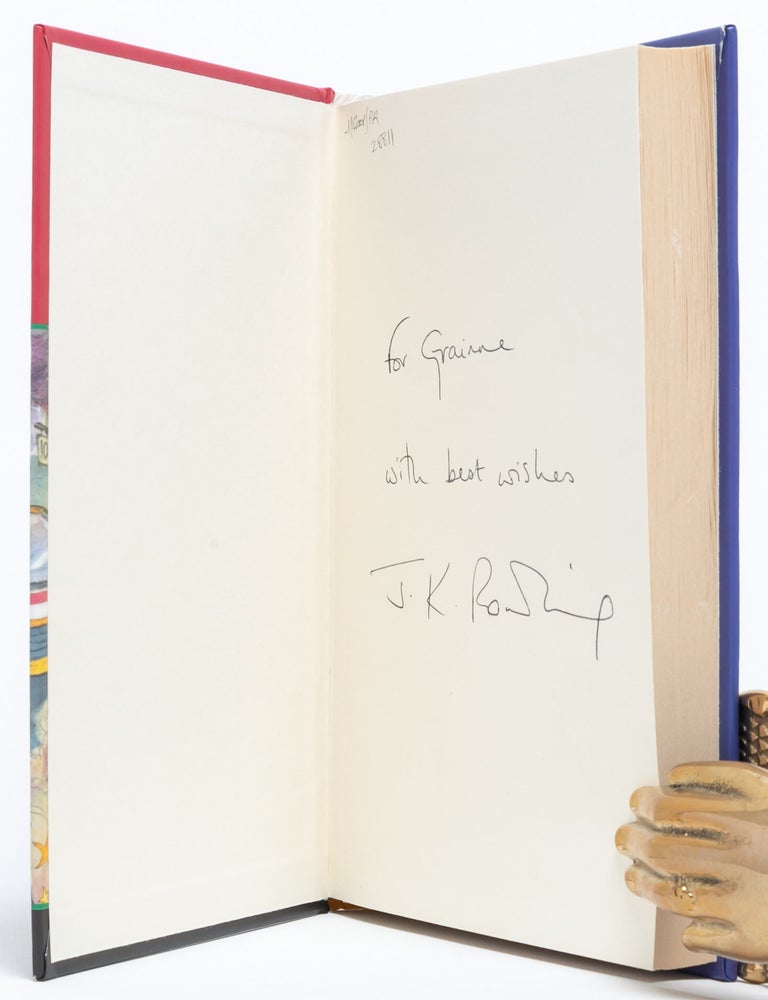 28811
for Grainne
with best wishes
J.K. Rowling